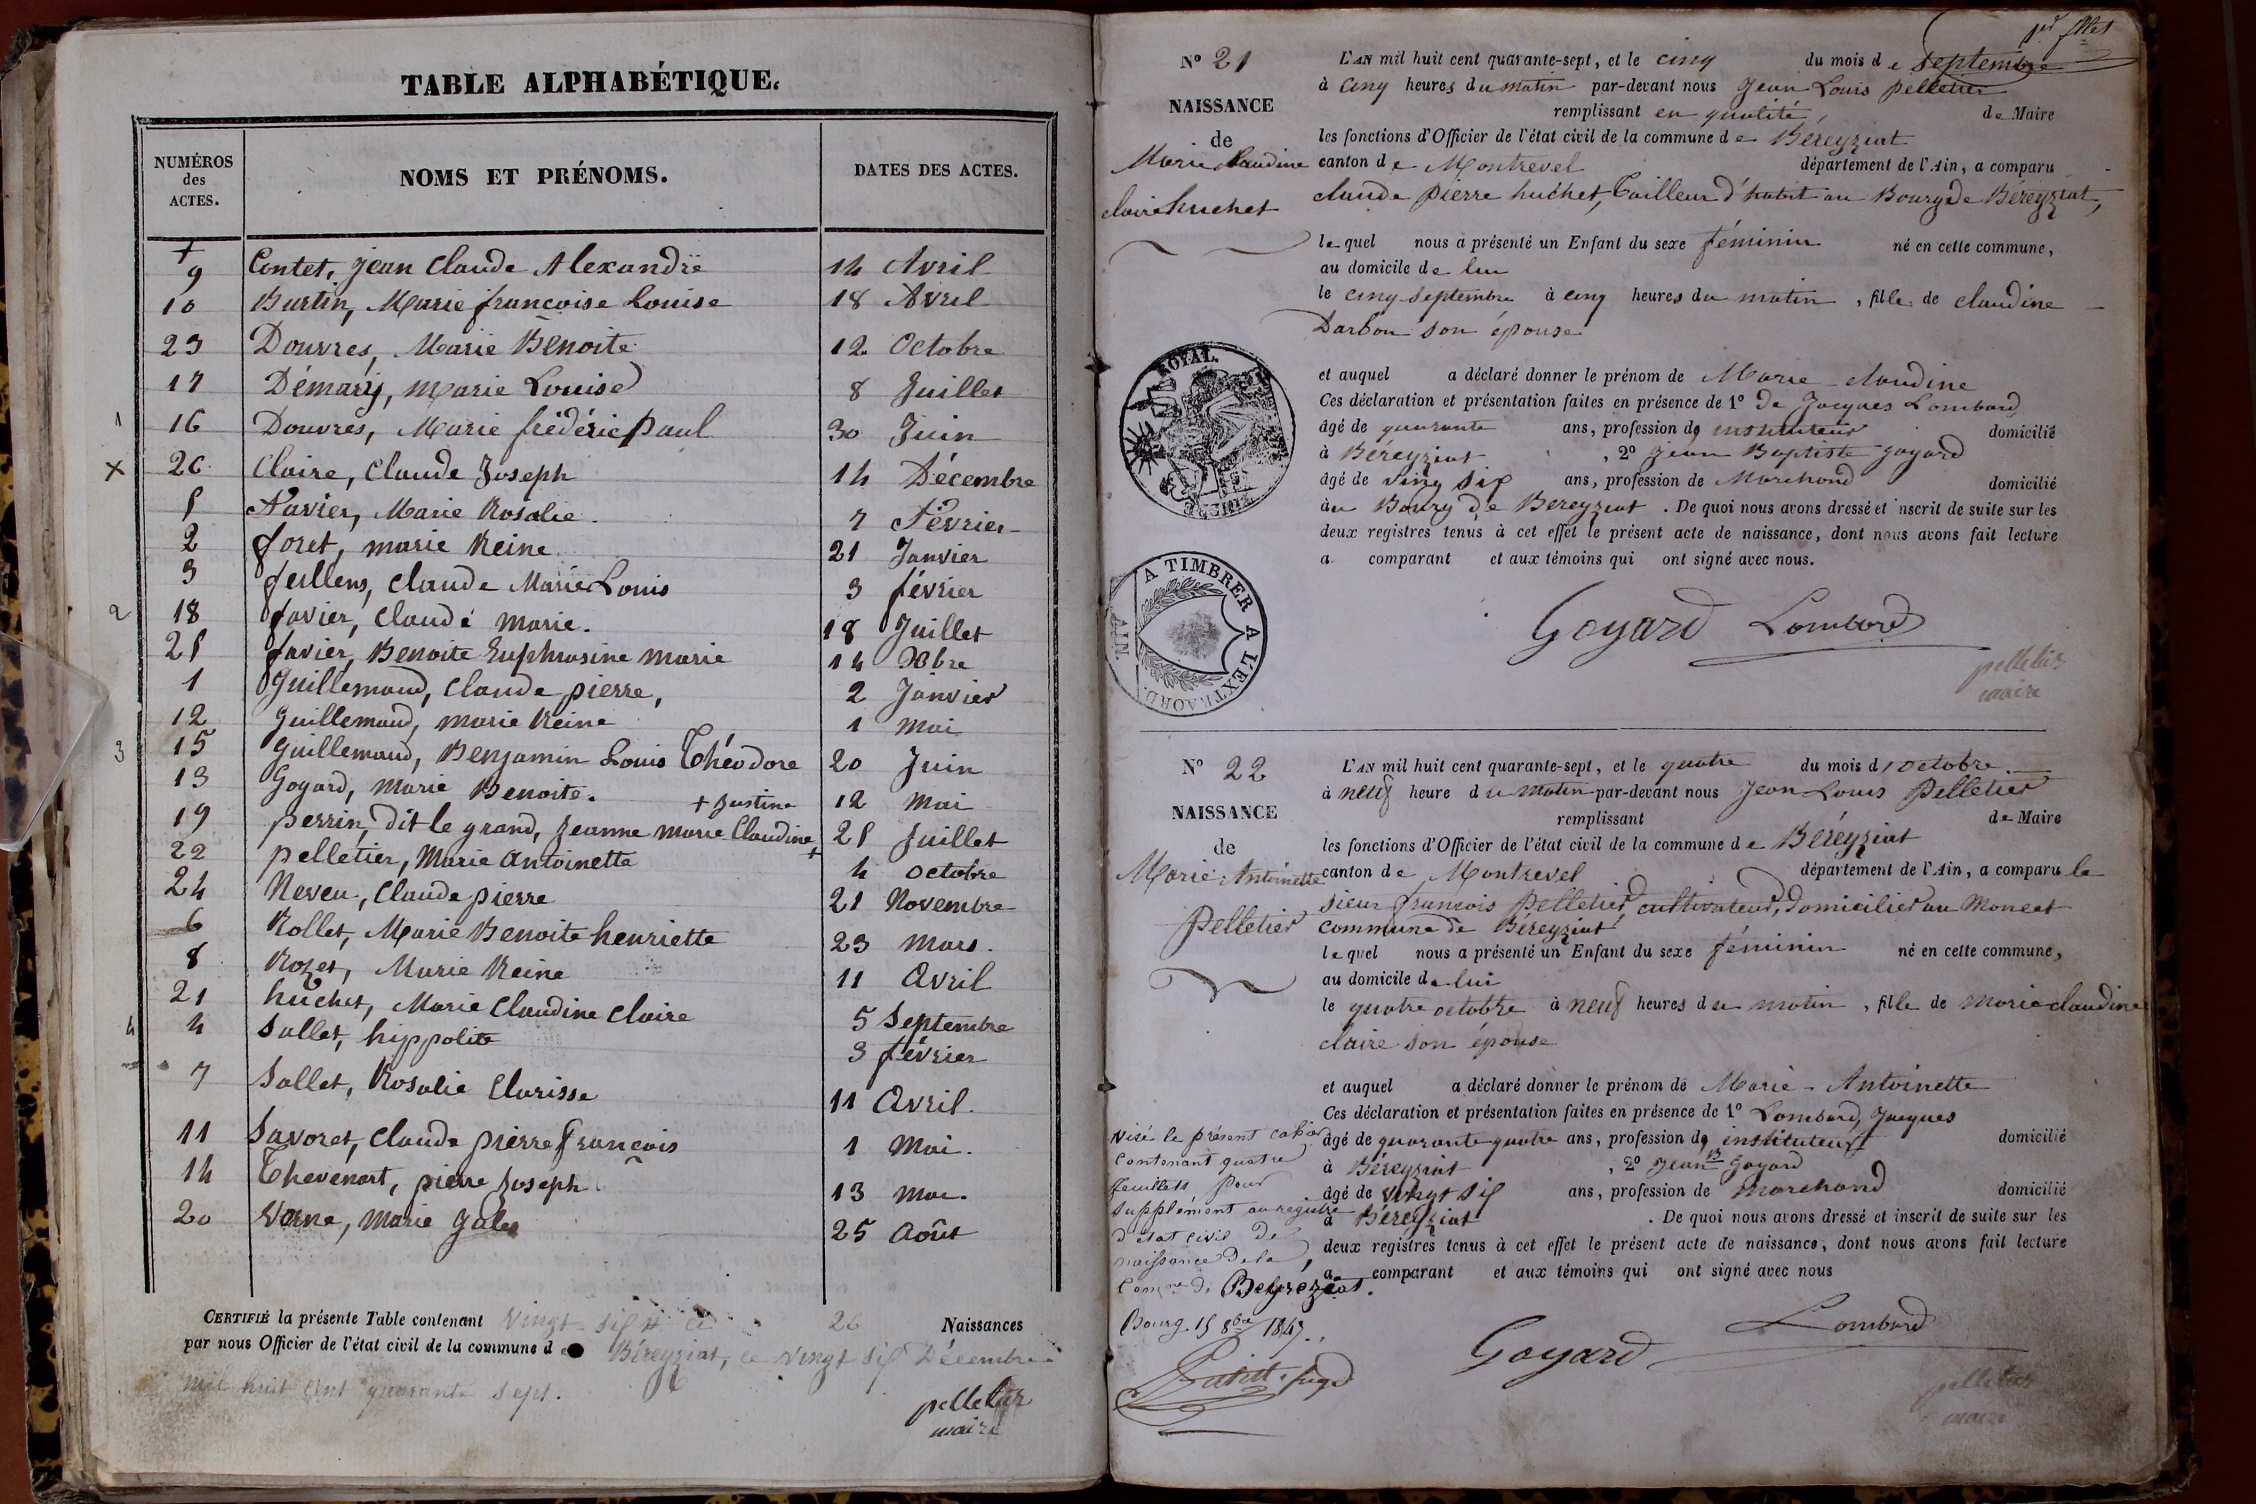 TABLE ALPHABÉTIQUE.
NUMÉROS des ACTES.
NOMS ET PRÉNOMS.
DATES DES ACTES.
9 Contet, Jean Claude Alexandre 14 Avril
10 Burtin, Marie françoise Louise 18 Avril
23 Douvres, Marie Benoite 12 Octobre
17 Démarij, Marie Louise 8 Juillet
1 16 Douvres, Marie frédéric Paul 30 Juin
x 26 Claire, Claude Joseph 14 Décembre
5 Favier, Marie Rosalie. 7 Février
2 foret, marie Reine 21 Janvier
3 feillens, Claude Marie Louis 3 février
2 18 favier, Claude marie. 18 Juillet
25 favier, Benoite Euphrasine marie 14 Xbre
1 Guillemaud, Claude pierre, 2 Janvier
12 Guillemaud, marie Reine 1 Mai
3 15 Guillemaud, Benjamin Louis Théodore 20 Juin
13 Goyard, Marie Benoite. 12 Mai
+ Justine
19 perrin, dit le grand, Jeanne Marie Claudine + 25 Juillet
22 pelletier, Marie Antoinette 4 octobre
24 Neveu, Claude pierre 21 Novembre
6 Rollet, Marie Benoite henriette 23 Mars.
8 Rozet, Marie Reine 11 Avril
21 huchet, Marie Claudine Claire 5 Septembre
4 4 Sallet, hippolite 3 février
7 Sallet, Rosalie Clarisse 11 Avril.
11 Savoret, Claude pierre françois 1 Mai.
14 Thevenart, pierre Joseph 13 Mai.
20 Varne, Marie 25 Août
CERTIFIÉ la présente Table contenant Vingt six 26 Naissances
par nous Officier de l'état civil de la commune de Béreyziat, ce vingt six Décembre
mil huit cent quarante sept.
pelletier
maire
1er fllet
N° 21
NAISSANCE
de
Marie Claudine
claire huchet
L'AN mil huit cent quarante-sept, et le cinq du mois de Septembre
à cinq heures du matin par-devant nous Jean Louis Pelletier
remplissant en qualité de Maire
les fonctions d'Officier de l'état civil de la commune de Béreyziat
canton de Montrevel département de l'Ain, a comparu
claude pierre huchet, Tailleur d'habit au Bourg de Béreyziat,
lequel nous a présenté un Enfant du sexe féminin né en cette commune,
au domicile de lui
le cinq Septembre à cinq heures du matin, fille de claudine
Darbon son épouse
et auquel a déclaré donner le prénom de Marie - claudine
Ces déclaration et présentation faites en présence de 1° de Jacques Lombard
âgé de quarante ans, profession de instituteur domicilié
à Béreyziat, 2° Jean Baptiste goyard
âgé de ving six ans, profession de Marchand domicilié
au Bourg de Bereyziat. De quoi nous avons dressé et inscrit de suite sur les
deux registres tenus à cet effet le présent acte de naissance, dont nous avons fait lecture
a comparant et aux témoins qui ont signé avec nous.
ROYAL.
TIMBRE
A TIMBRER A L'EXTRAORD.
AIN.
Goyard Lombard
pelletier
maire
N° 22
NAISSANCE
de
Marie Antoinette
Pelletier
L'AN mil huit cent quarante-sept, et le quatre du mois d'octobre
à neuf heure du matin par-devant nous Jean Louis Pelletier
remplissant de Maire
les fonctions d'Officier de l'état civil de la commune de Béréyziat
canton de Montrevel département de l'Ain, a comparu le
sieur françois Pelletier, cultivateur, domicilier au Moncet
commune de Béreyziat
lequel nous a présenté un Enfant du sexe féminin né en cette commune,
au domicile de lui
le quatre octobre à neuf heures du matin, fille de Marie claudine
claire son épouse
et auquel a déclaré donner le prénom de Marie - Antoinette
Ces déclaration et présentation faites en présence de 1° Lombard, Jacques
âgé de quarante quatre ans, profession de instituteur domicilié
à Béreyziat, 2° Jean B Goyard
âgé de vingt six ans, profession de marchand domicilié
à Béreyziat. De quoi nous avons dressé et inscrit de suite sur les
deux registres tenus à cet effet le présent acte de naissance, dont nous avons fait lecture
a comparant et aux témoins qui ont signé avec nous
Visé le présent cahier
contenant quatre
feuillets pour
supplément au registre
d'état civil de
naissance de la
Comne de Beyréziat.
Bourg 15 8bre 1847.
juge
Goyard Lombard
pelletier
maire